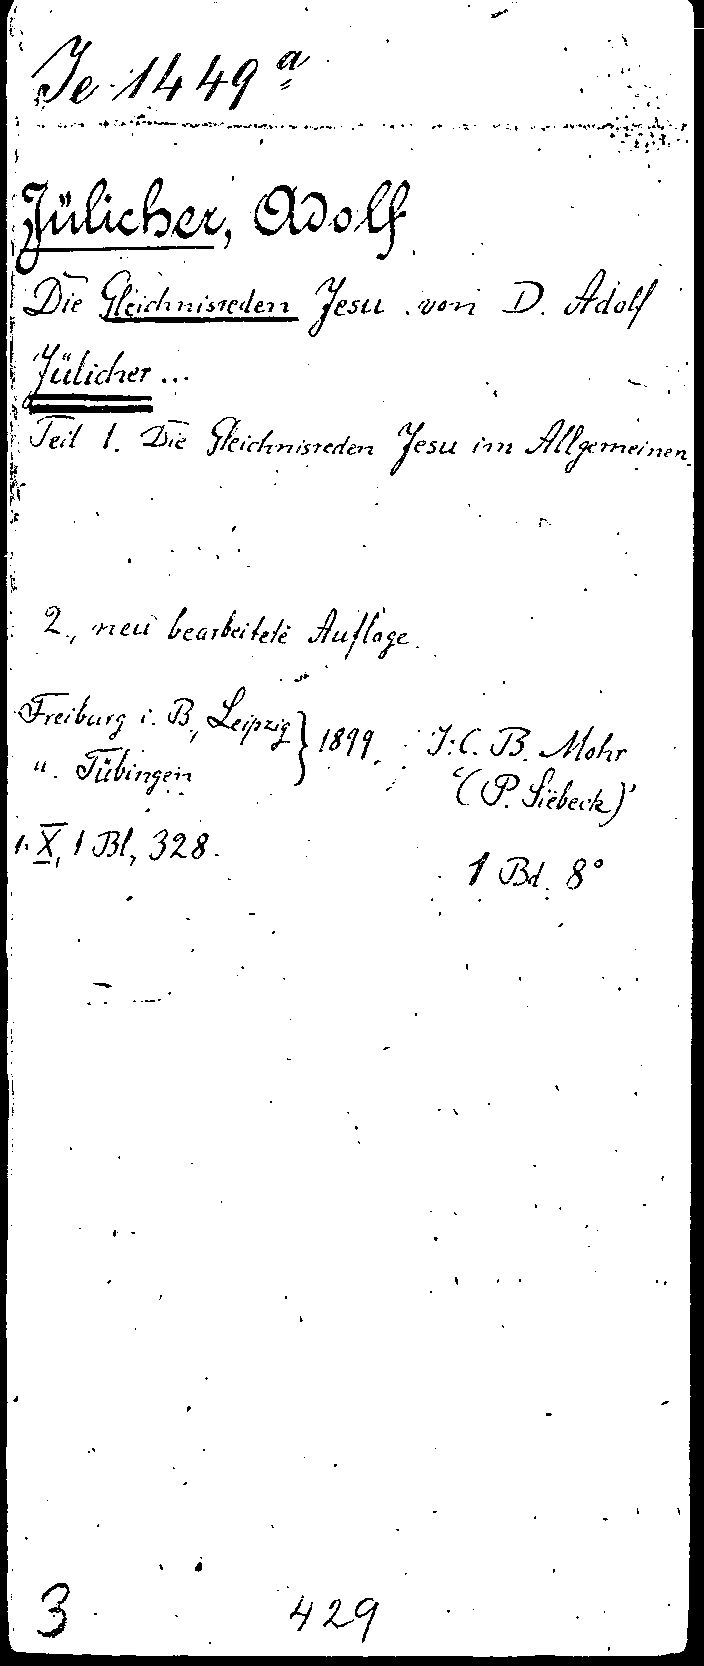 Je 1449 a
Jülicher, Adolf
Die Gleichnisreden Jesu von D. Adolf
Jülicher ...
Teil 1. Die Gleichnisreden Jesu im Allgemeinen.
2., neu bearbeitete Auflage.
Freiburg i. B., Leipzig
u. Tübingen } 1899. J. C. B. Mohr
(P. Siebeck)
X, 1 Bl., 328.
1 Bd. 8°
3 429